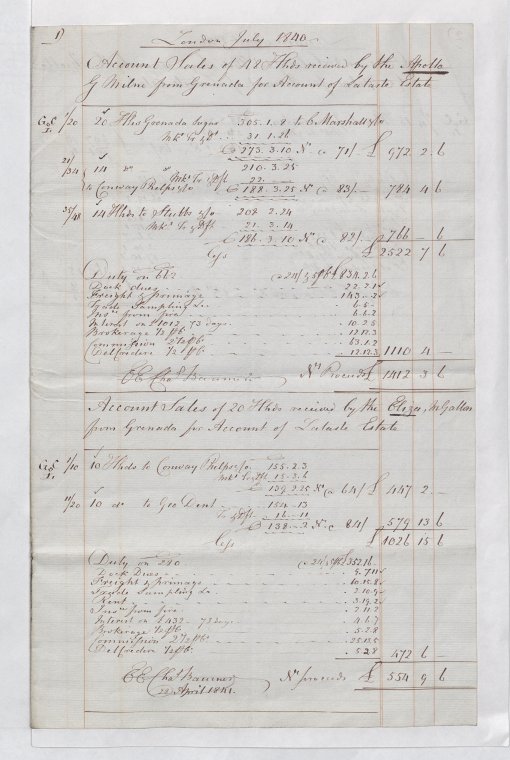 1)
London July 1840
Account Sales of 42 Hhds received by the Apollo
G Milne from Grenada for Account of Lataste Estate
1/20 20 Hhds Grenada Sugar 305.1.8 to C Marshall & Co
31.1.26
273.3.10 Nt @ 71/- £ 972 2 6
21/34 14 do 210.3.25
22
to Conway Phelps & Co 188.3.25 Nt @ 83/- 784 4 6
35/48 14 Hhds to Stubbs & Co 208.2.24
21.3.14
186.3.10 Nt @ 82/- 766 - 6
£ 2522 7 6
Less
Duty on 662 @ 24/ & 5 pCt £ 834.2.6
Dock dues 22.2.1
Freight & primage 143..2
Trade Sampling &c 6.5-
Insce from fire 6.6.2
Interest on £1012. 73 days 10.2.5
Brokerage 1/2 pCt 12.12.3
Commission 2 1/2 pCt 63.1.2
Delcredere 1/2 pCt 12.12.3 1110 4 -
EE Chas Baumer Nt Proceeds £ 1412 3 6
Account Sales of 20 Hhds received by the Eliza, McGallan
from Grenada for Account of Lataste Estate
1/10 10 Hhds to Conway Phelps & Co 155.2.3
15.3.6
139.2.25 Nt @ 64/ £ 447 2 -
11/20 10 do to Geo Dent 154-13
16-11
138-2 Nt @ 84/ 579 13 6
£ 1026 15 6
Less
Duty on 280 @ 24/ & 5 pCt £ 352.16
Dock Dues 9.7.11
Freight & primage 60.15.8
Trade Sampling &c 2.10.9
Rent 3.19.2
Insce from fire 2.11.2
Interest on £432. 73 days 4.6.7
Brokerage 1/2 pCt 5.2.8
Commission 2 1/2 pCt 25.13.5
Delcredere 1/2 pCt 5.2.8 472 6 -
EE Chas Baumer Nt proceeds £ 554 9 6
22 April 1841.